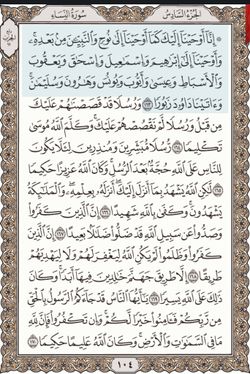 الجزء السادس سورة النساء
۞ إنا أوحينا إليك كما أوحينا إلى نوح والنبيين من بعده
وأوحينا إلى إبراهيم وإسمعيل وإسحق ويعقوب
والأسباط وعيسى وأيوب ويونس وهرون وسليمن
وءاتينا داود زبورا ١٦٣ ورسلا قد قصصنهم عليك
من قبل ورسلا لم نقصصهم عليك وكلم الله موسى
تكليما ١٦٤ رسلا مبشرين ومنذرين لئلا يكون
للناس على الله حجة بعد الرسل وكان الله عزيزا حكيما
١٦٥ لكن الله يشهد بما أنزل إليك أنزله بعلمه والملئكة
يشهدون وكفى بالله شهيدا ١٦٦ إن الذين كفروا
وصدوا عن سبيل الله قد ضلوا ضللا بعيدا ١٦٧ إن الذين
كفروا وظلموا لم يكن الله ليغفر لهم ولا ليهديهم
طريقا ١٦٨ إلا طريق جهنم خلدين فيها أبدا وكان
ذلك على الله يسيرا ١٦٩ يأيها الناس قد جاءكم الرسول بالحق
من ربكم فءامنوا خيرا لكم وإن تكفروا فإن لله
ما في السموت والأرض وكان الله عليما حكيما ١٧٠
١٠٤